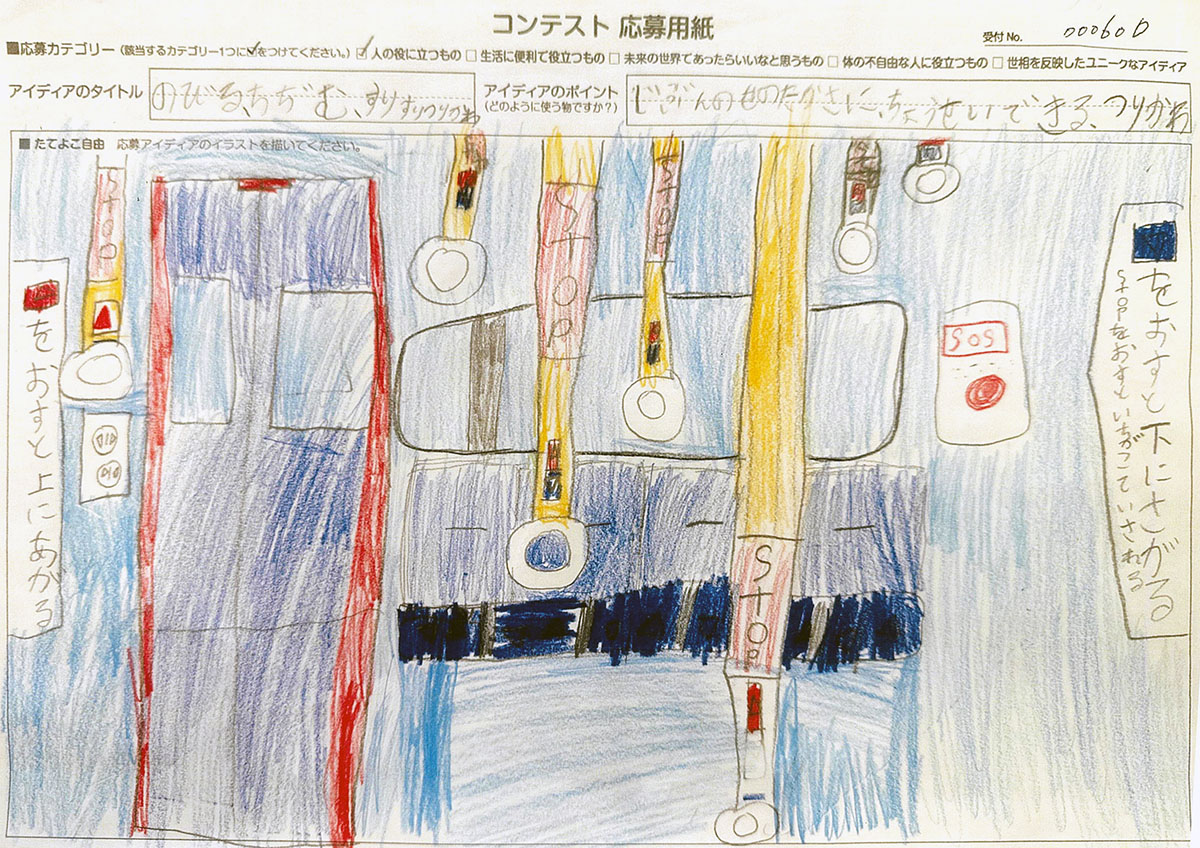 コンテスト 応募用紙
受付 No. 000600
■応募カテゴリー（該当するカテゴリー1つに✓をつけてください。）☑ 人の役に立つもの □ 生活に便利で役立つもの □ 未来の世界であったらいいなと思うもの □ 体の不自由な人に役立つもの □ 世相を反映したユニークなアイディア
アイディアのタイトル
のびる、ちぢむ、すりすりつりかわ
アイディアのポイント
（どのように使う物ですか？）
じぶんのせのたかさに、ちょうせいできる、つりかわ
■ たてよこ自由 応募アイディアのイラストを描いてください。
STOP
STOP
STOP
STOP
STOP
SOS
をおすと上にあがる
をおすと下にさがる
STOPをおすといちがこていされる